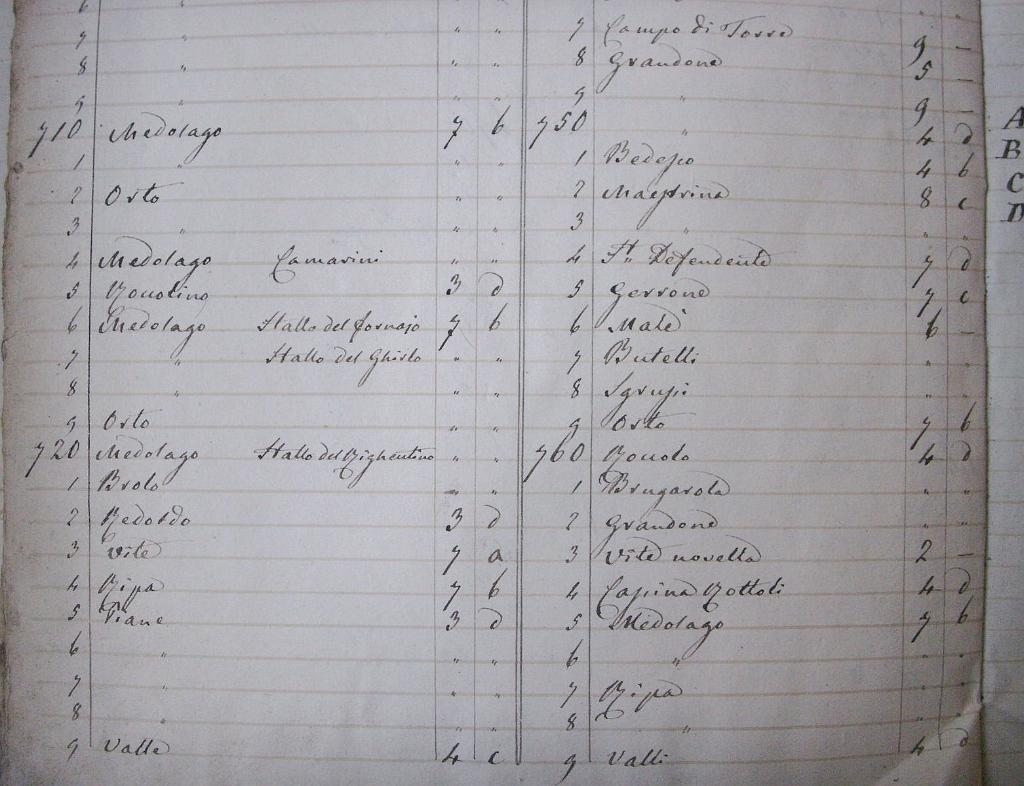 6 " " "
7 " " "
8 " " "
9 " " "
710 Medolago 7 b
1 " " "
2 Orto " "
3 " " "
4 Medolago Camarini " "
5 3 d
6 Medolago Stallo del fornajo 7 b
7 " Stallo del Ghislo " "
8 " " "
9 Orto " "
720 Medolago Stallo del Righentino " "
1 Brolo " "
2 Redordo 3 d
3 Vite 7 a
4 Ripa 7 b
5 Piane 3 d
6 " " "
7 " " "
8 " " "
9 Valle 4 c
7 Campo di Torre 9 –
8 Grandone 5 –
9 " 9 –
750 " 4 d
1 4 b
2 Maestrina 8 c
3 " " "
4 St. Defendente 7 d
5 Gerrone 7 c
6 Malè 6 –
7 Butelli
8
9 Orto 7 b
760 Roncolo 4 d
1 Brugarola " "
2 Grandone " "
3 Vite novella 2 –
4 Casina Rottoli 4 d
5 Medolago 7 b
6 " " "
7 Ripa " "
8 " " "
9 Valli 4 d
A
B
C
D